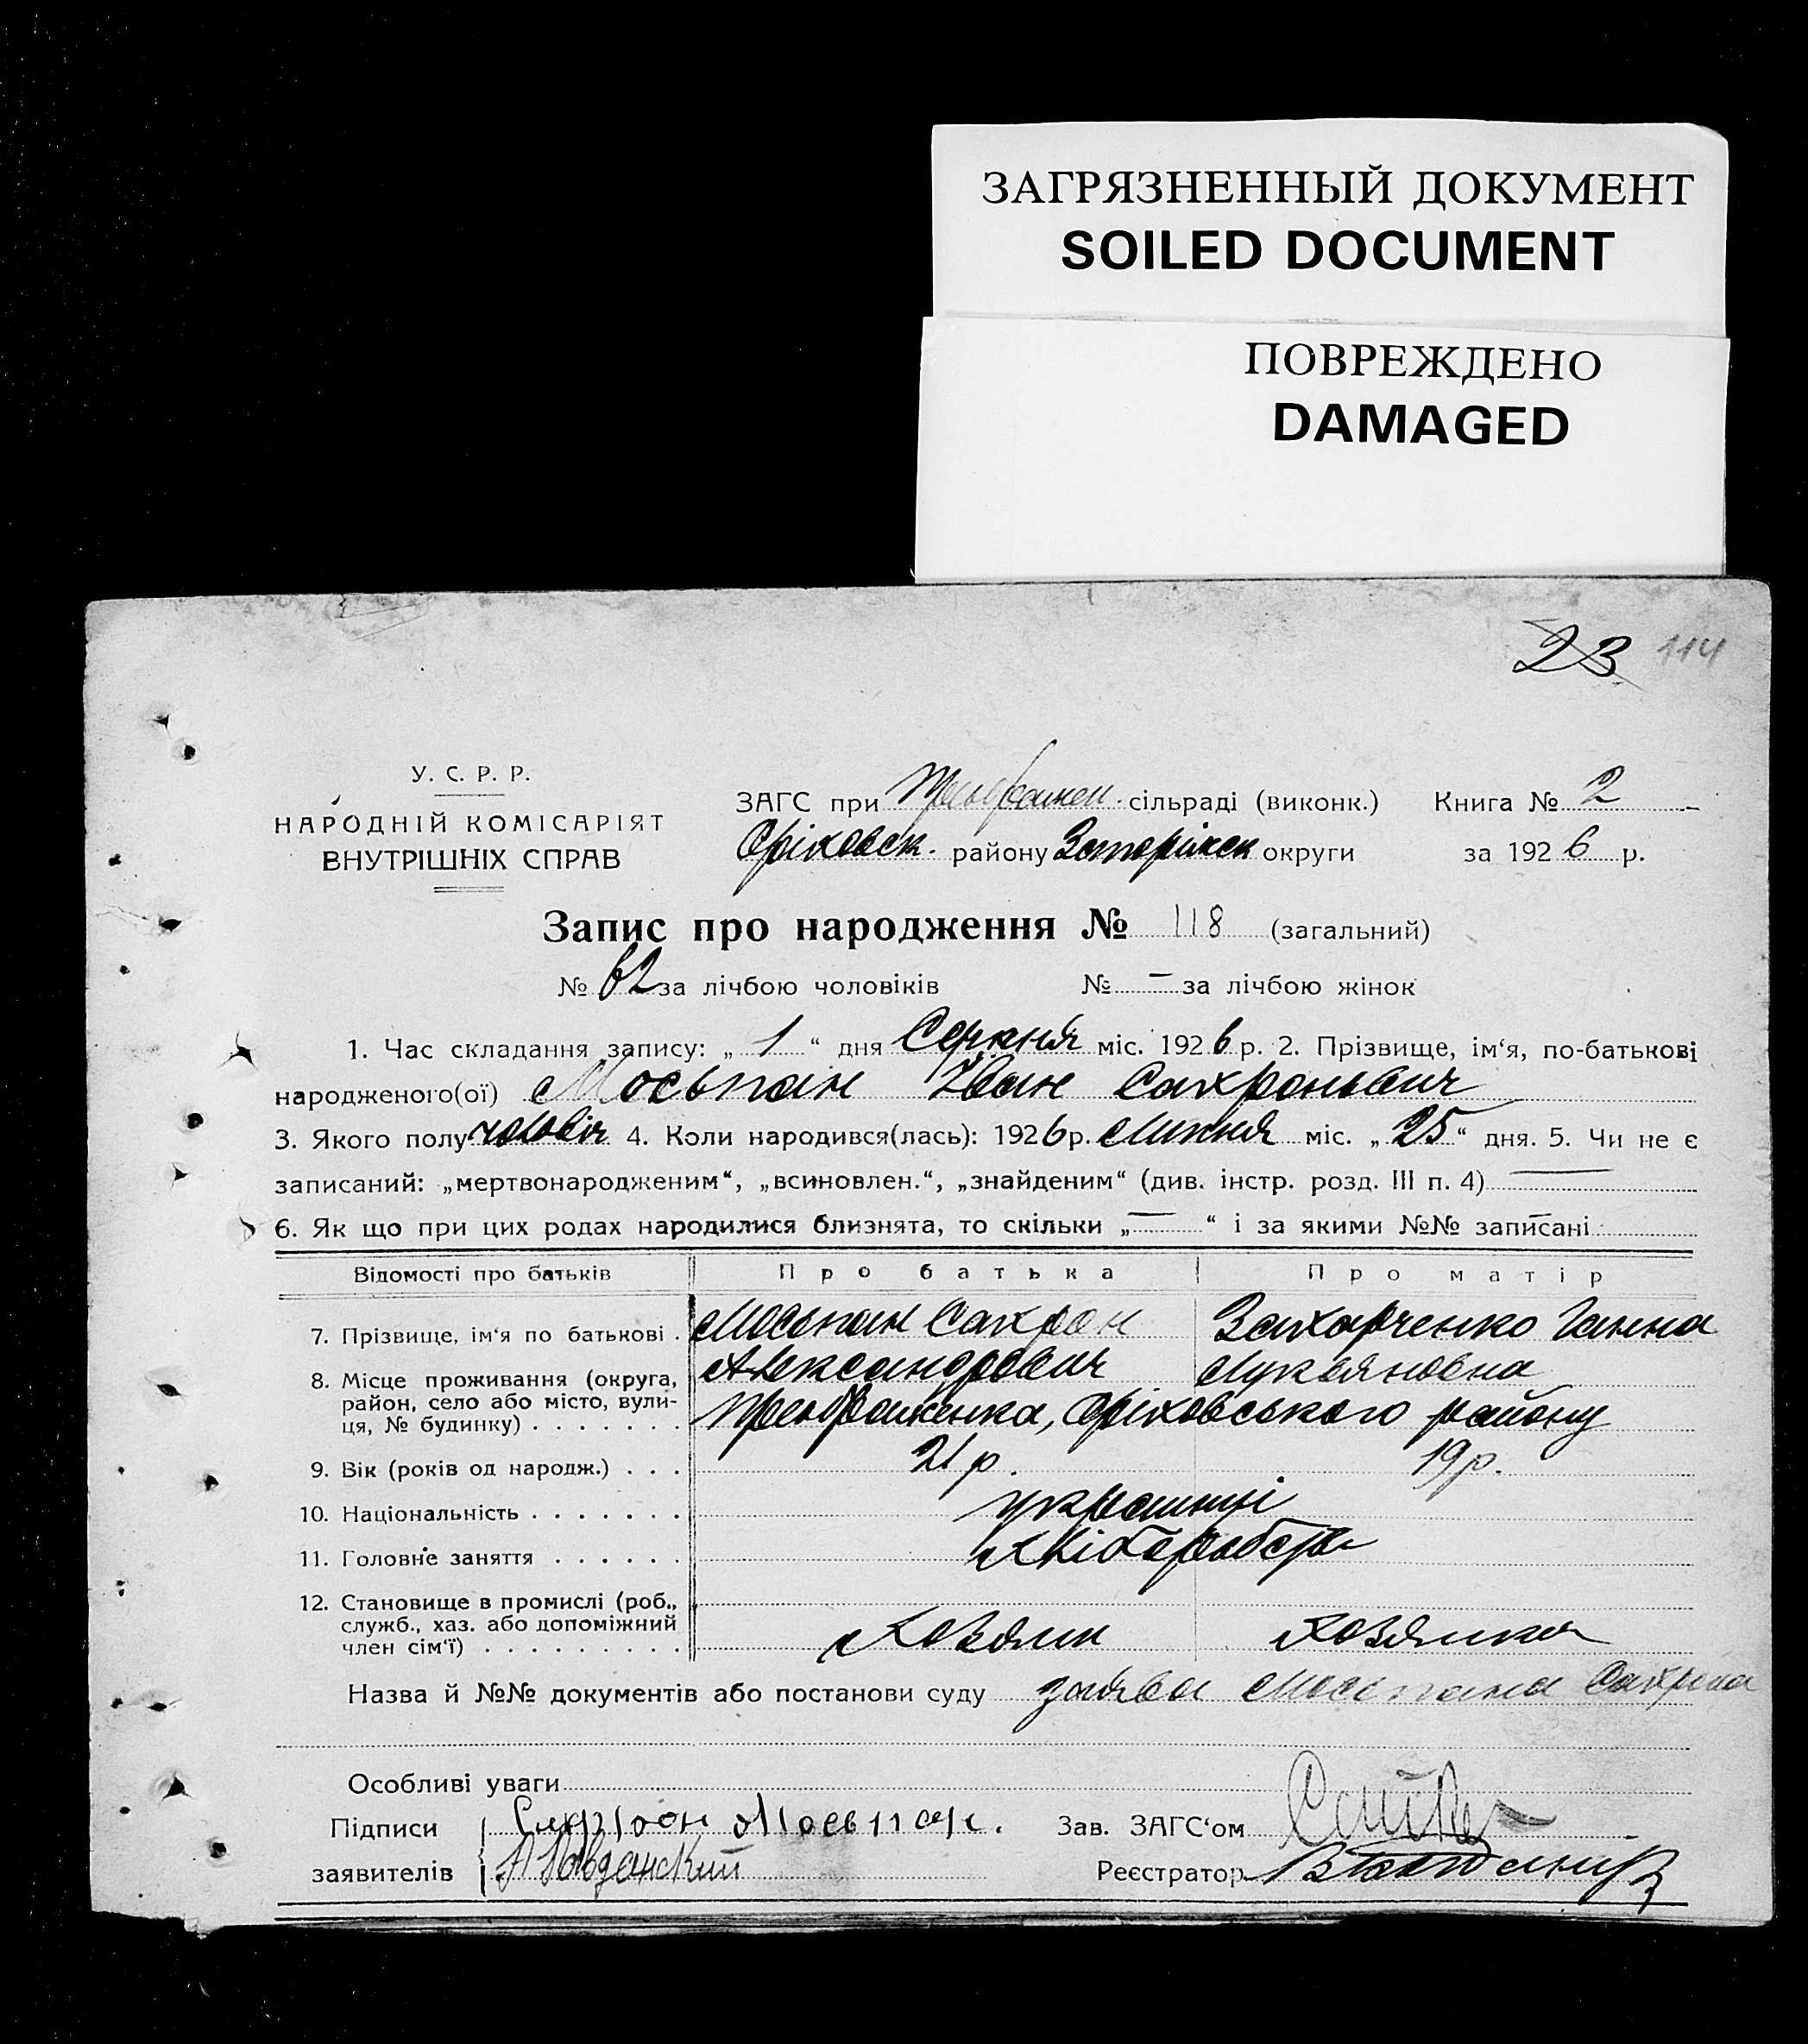 ЗАГРЯЗНЕННЫЙ ДОКУМЕНТ
SOILED DOCUMENT
ПОВРЕЖДЕНО
DAMAGED
23 114
У. С. Р. Р.
НАРОДНІЙ КОМІСАРІЯТ
ВНУТРІШНІХ СПРАВ
ЗАГС при Преображен. сільраді (виконк.) Книга № 2
Оріховск. району Запоріжск округи за 1926 р.
Запис про народження № 118 (загальний)
№ 62 за лічбою чоловіків № — за лічбою жінок
1. Час складання запису: „ 1 “ дня Серпня міс. 1926 р. 2. Прізвище, ім‘я, по-батькові
народженого(ої) Мосьпан Іван Сахронович
3. Якого полу чоловіч 4. Коли народився(лась): 1926 р. Липня міс. „ 25 “ дня. 5. Чи не є
записаний: „мертвонародженим“, „всиновлен.“, „знайденим“ (див. інстр. розд. III п. 4) —
6. Як що при цих родах народилися близнята, то скільки „ — “ і за якими №№ записані —
Відомості про батьків Про батька Про матір
7. Прізвище, ім‘я по батькові . Мосьпан Сахрон Захарченко Ганна
Александрович Лукьяновна
8. Місце проживання (округа,
район, село або місто, вули-
ця, № будинку) . . . . . . . Преображенка, Оріховського району
9. Вік (років од народж.) . . . 21 р. 19 р.
10. Національність . . . . . . . украинці
11. Головне заняття . . . . . . хліборобств
12. Становище в промислі (роб.,
служб., хаз. або допоміжний
член сім‘ї) . . . . . . . . . Хозяин Хозяйка
Назва й №№ документів або постанови суду заява Мосьпана Сахрона
Особливі уваги
Підписи Сахрон Мосьпан. Зав. ЗАГС‘ом
заявителів Реєстратор